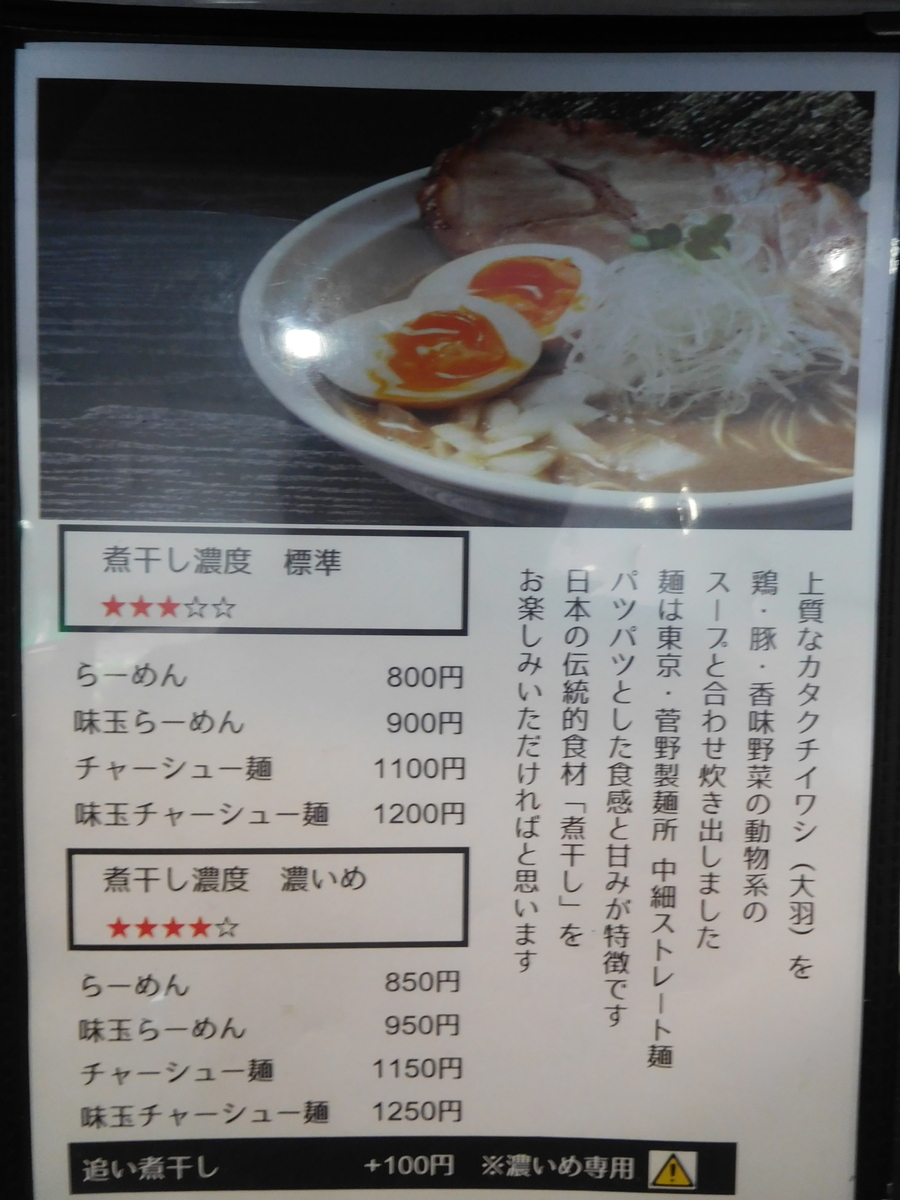 煮干し濃度 標準
★★★☆☆
らーめん 800円
味玉らーめん 900円
チャーシュー麺 1100円
味玉チャーシュー麺 1200円
煮干し濃度 濃いめ
★★★★☆
らーめん 850円
味玉らーめん 950円
チャーシュー麺 1150円
味玉チャーシュー麺 1250円
追い煮干し +100円 ※濃いめ専用
上質なカタクチイワシ（大羽）を
鶏・豚・香味野菜の動物系の
スープと合わせ炊き出しました
麺は東京・菅野製麺所 中細ストレート麺
パツパツとした食感と甘みが特徴です
日本の伝統的食材「煮干し」を
お楽しみいただければと思います